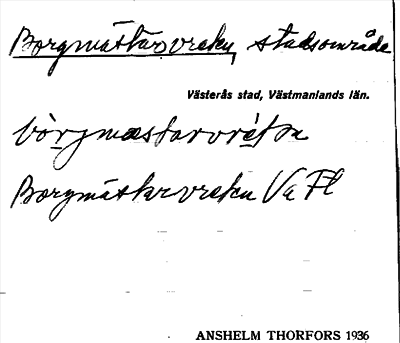 Borgmästarvreken, stadsområde
Västerås stad, Västmanlands län.
bòrjmæstarvréka
Borgmästarvreken Va Fl
ANSHELM THORFORS 1936